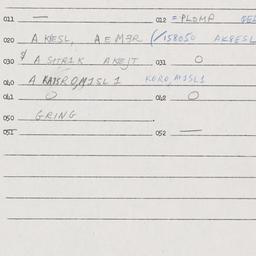 011 — 012 = PLDMP
020 A KESL, A E M3R (/158050 AK8ESL
030 A SHRIK AKEJT 031 O
040 A O,M1SL1 KORO,M1SL1
041 O 042 O
050 GRING
051 052 —